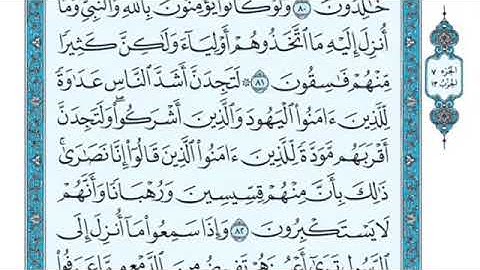 خَٰلِدُونَ ٨٠ وَلَوْ كَانُوا۟ يُؤْمِنُونَ بِٱللَّهِ وَٱلنَّبِىِّ وَمَآ
أُنزِلَ إِلَيْهِ مَا ٱتَّخَذُوهُمْ أَوْلِيَآءَ وَلَٰكِنَّ كَثِيرًا
مِّنْهُمْ فَٰسِقُونَ ٨١ ۞ لَتَجِدَنَّ أَشَدَّ ٱلنَّاسِ عَدَٰوَةً
لِّلَّذِينَ ءَامَنُوا۟ ٱلْيَهُودَ وَٱلَّذِينَ أَشْرَكُوا۟ ۖ وَلَتَجِدَنَّ
أَقْرَبَهُم مَّوَدَّةً لِّلَّذِينَ ءَامَنُوا۟ ٱلَّذِينَ قَالُوٓا۟ إِنَّا نَصَٰرَىٰ ۚ
ذَٰلِكَ بِأَنَّ مِنْهُمْ قِسِّيسِينَ وَرُهْبَانًا وَأَنَّهُمْ
لَا يَسْتَكْبِرُونَ ٨٢ وَإِذَا سَمِعُوا۟ مَآ أُنزِلَ إِلَى
ٱلرَّسُولِ تَرَىٰٓ أَعْيُنَهُمْ تَفِيضُ مِنَ ٱلدَّمْعِ مِمَّا عَرَفُوا۟
الجزء ٧
الحزب ١٣